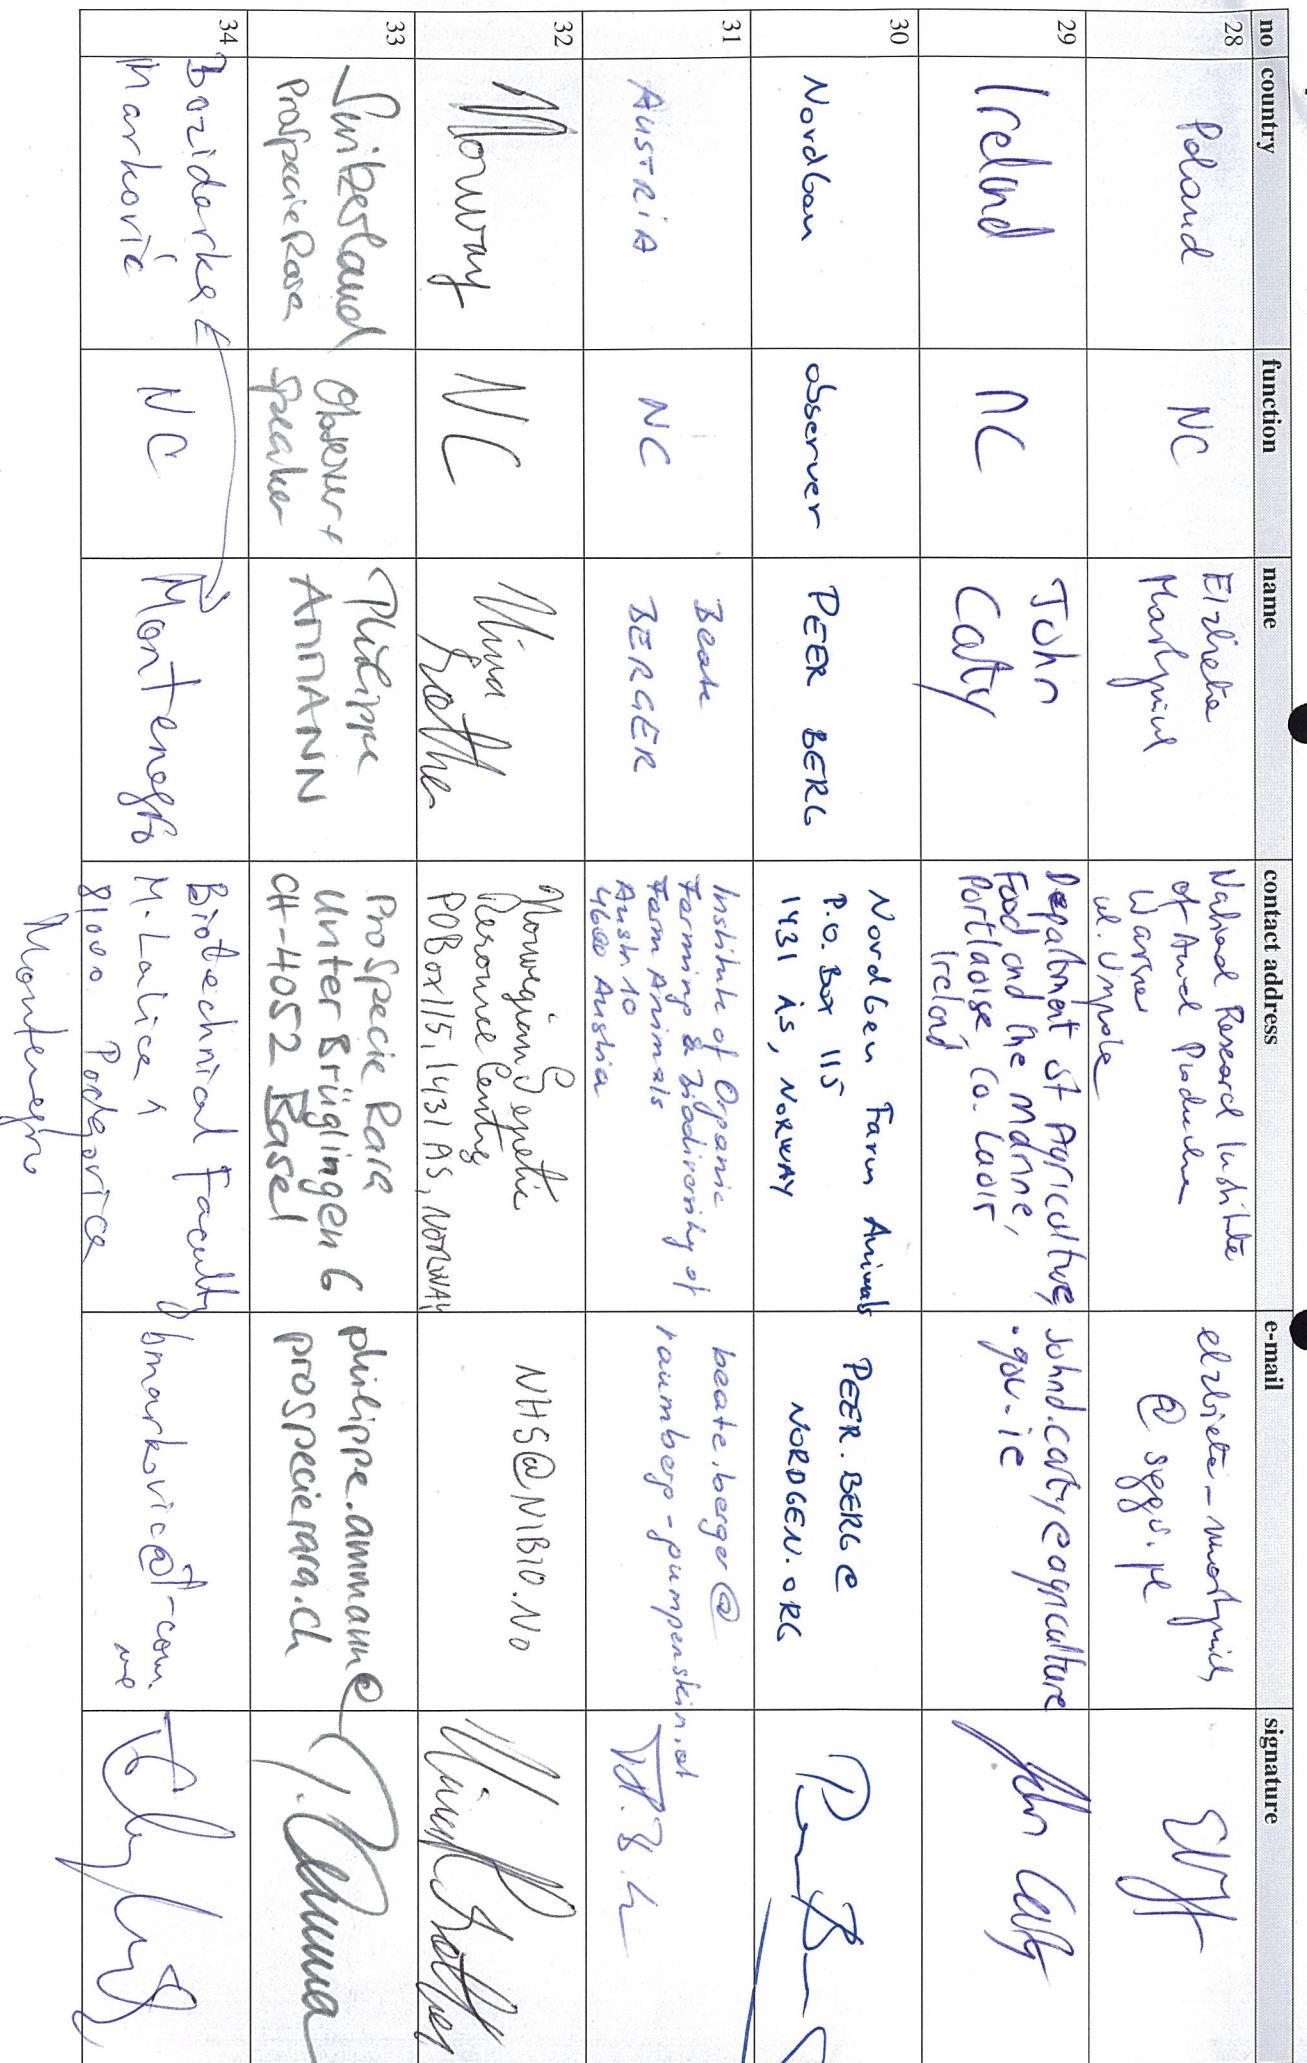 no country function name contact address e-mail signature
28
Poland
NC
Elzbieta
Martyniuk
National Research Institute
of Animal Production
Warsaw
ul.
@ .pl
29
Ireland
NC
John
Carty
Department of Agriculture,
Food and the Marine,
Portlaoise, Co. Laois
Ireland
johnd.carty@agriculture
.gov.ie
John Carty
30
NordGen
observer
PEER BERG
NordGen Farm Animals
P.O. Box 115
1431 Ås, NORWAY
PEER.BERG@
NORDGEN.ORG
31
AUSTRIA
NC
Beate
BERGER
Institute of Organic
Farming & Biodiversity of
Farm Animals
Austr. 10
4600 Austria
beate.berger@
raumberg-gumpenstein.at
32
Norway
NC
Nina
Sæther
Norwegian Genetic
Resource Centre
POBox 115, 1431 ÅS, NORWAY
NHS@NIBIO.NO
33
Switzerland
ProSpecieRara
Observer +
Speaker
Philippe
AMMANN
ProSpecie Rara
Unter Brüglingen 6
CH-4052 Basel
philippe.ammann@
prospecierara.ch
34
Bozidarka
Marković
NC
Montenegro
Biotechnical Faculty
M. Lalica 1
81000 Podgorica
Montenegro
bmarkovic@t-com.
me